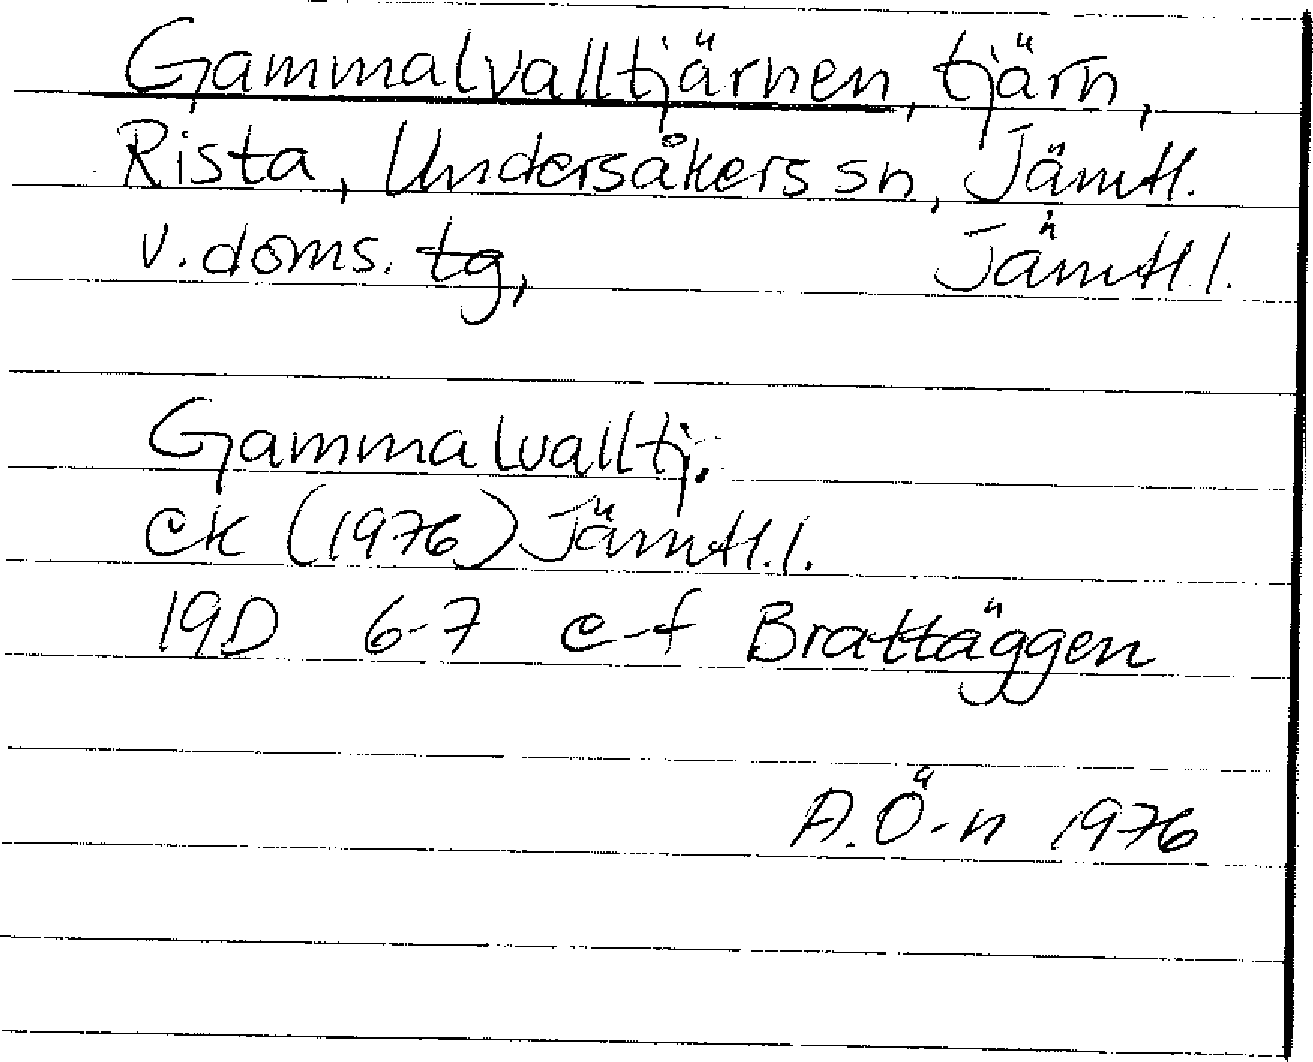 Gammalvalltjärnen, tjärn,
Rista, Undersåkers sn, Jämtl.
v. doms. tg, Jämtl. l.
Gammalvalltj.
ek (1976) Jämtl. l.
19D 6-7 e-f Brattäggen
A. Ö-n 1976